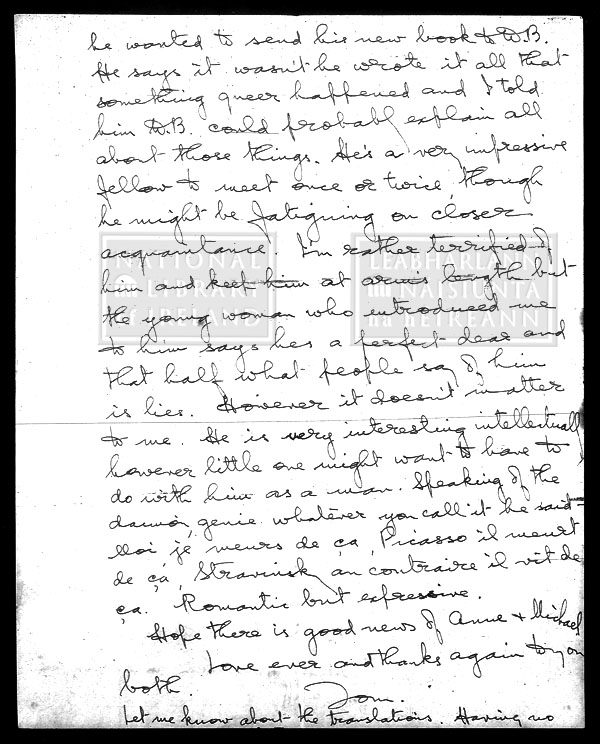 he wanted to send his new book to W.B.
He says it wasn't he wrote it all that
something queer happened and I told
him W.B. could probably explain all
about those things. He's a very impressive
fellow to meet once or twice, though
he might be fatigning on closer
acquaintance. I'm rather terrified of
him and keep him at arm's length but
the young woman who introduced me
to him says he's a perfect dear and
that half what people say of him
is lies. However it doesn't matter
to me. He is very interesting intellectually
however little one might want to have to
do with him as a man. Speaking of the
daimon, genie, whatever you call it he said -
Moi je meurs de ça, Picasso il meurt
de ça, Stravinsky au contraire il vit de
ça. Romantic but expressive.
Hope there is good news of Anne & Michael
Love ever and thanks again to you
both. Tom.
Let me know about the translations. Having no
NATIONAL LIBRARY of IRELAND
LEABHARLANN NÁISIÚNTA na hÉIREANN